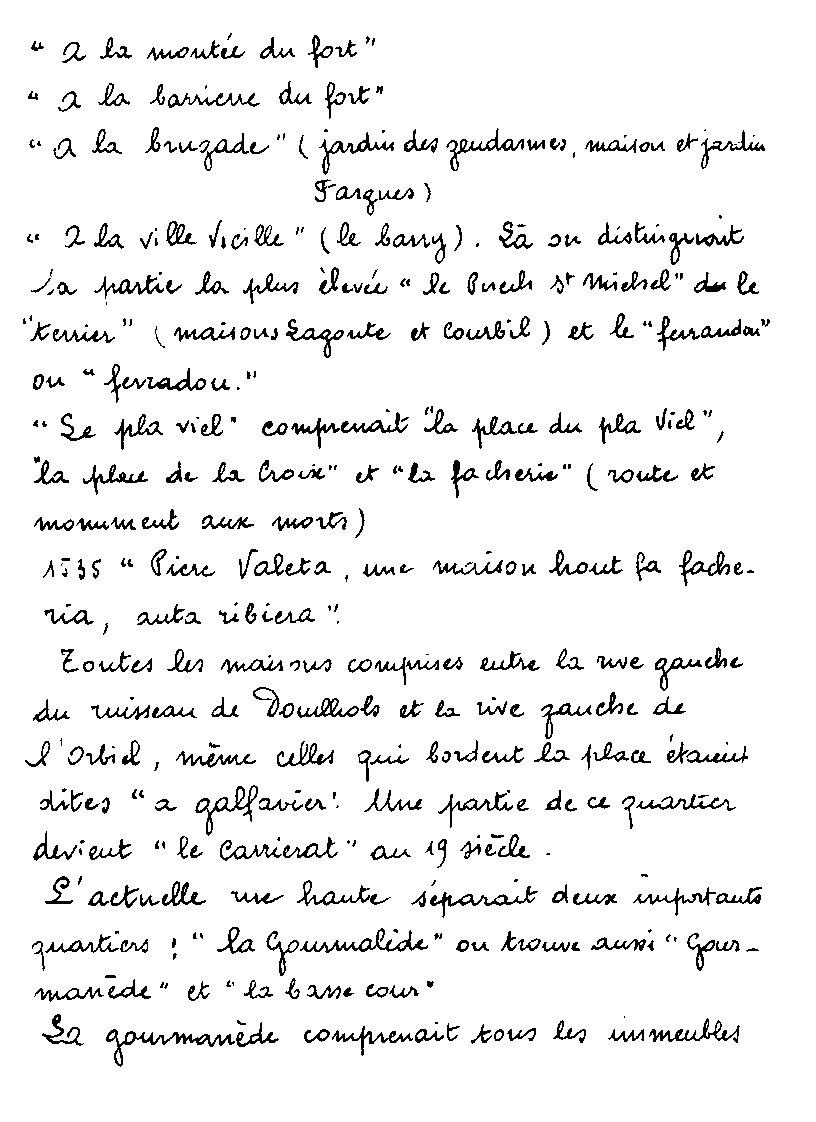 “ A la montée du fort”
“ A la barriere du fort”
“ A la bruzade” ( jardin des gendarmes, maison et jardin
Fargues)
“ A la ville vieille” (le barry). Là on distinguait
La partie la plus élevée “ le Puech St Michel” du le
“terrier” ( maisons Lagoute et Courbil ) et le “ferrandou”
ou “ ferradou.”
“ Le pla viel” comprenait “la place du pla viel”,
“la place de la Croix” et “la facherie” ( route et
monument aux morts)
1535 “ Piere Valeta, une maison hout fa fache-
ria, auta ribiera”.
Toutes les maisons comprises entre la rive gauche
du ruisseau de Douilhols et la rive gauche de
l'Orbiel, même celles qui bordent la place étaient
dites “ a galfavier”. Une partie de ce quartier
devient “ le Carrierat” au 19 siècle.
L'actuelle rue haute séparait deux importants
quartiers : “ la Gourmalède” on trouve aussi “ Gour-
manède” et “ la basse cour”
La gourmanède comprenait tous les immeubles